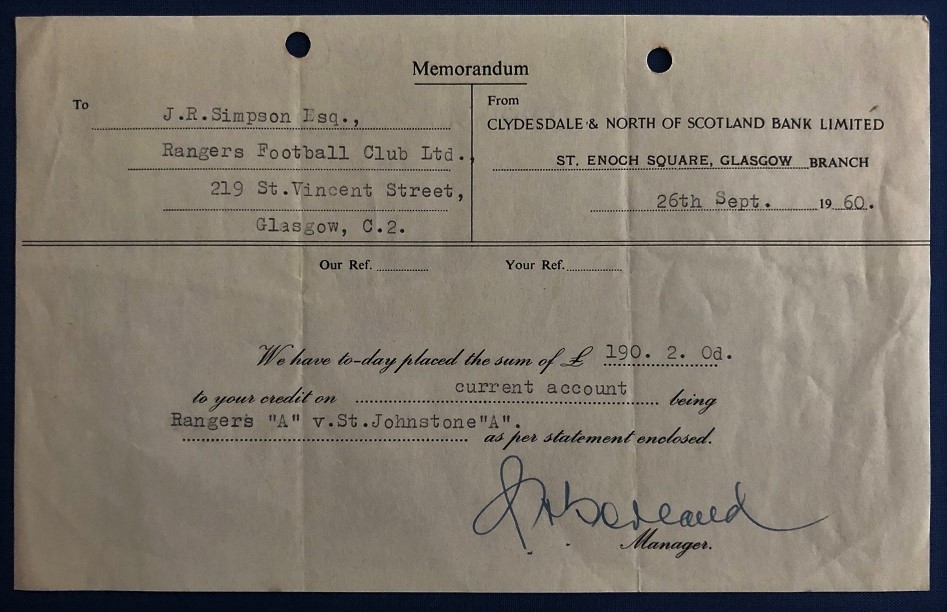 Memorandum
To J.R.Simpson Esq.,
Rangers Football Club Ltd.,
219 St.Vincent Street,
Glasgow, C.2.
From
CLYDESDALE & NORTH OF SCOTLAND BANK LIMITED
ST. ENOCH SQUARE, GLASGOW BRANCH
26th Sept. 19 60.
Our Ref. Your Ref.
We have to-day placed the sum of £ 190. 2. 0d.
to your credit on current account being
Rangers "A" v.St.Johnstone"A". as per statement enclosed.
Manager.